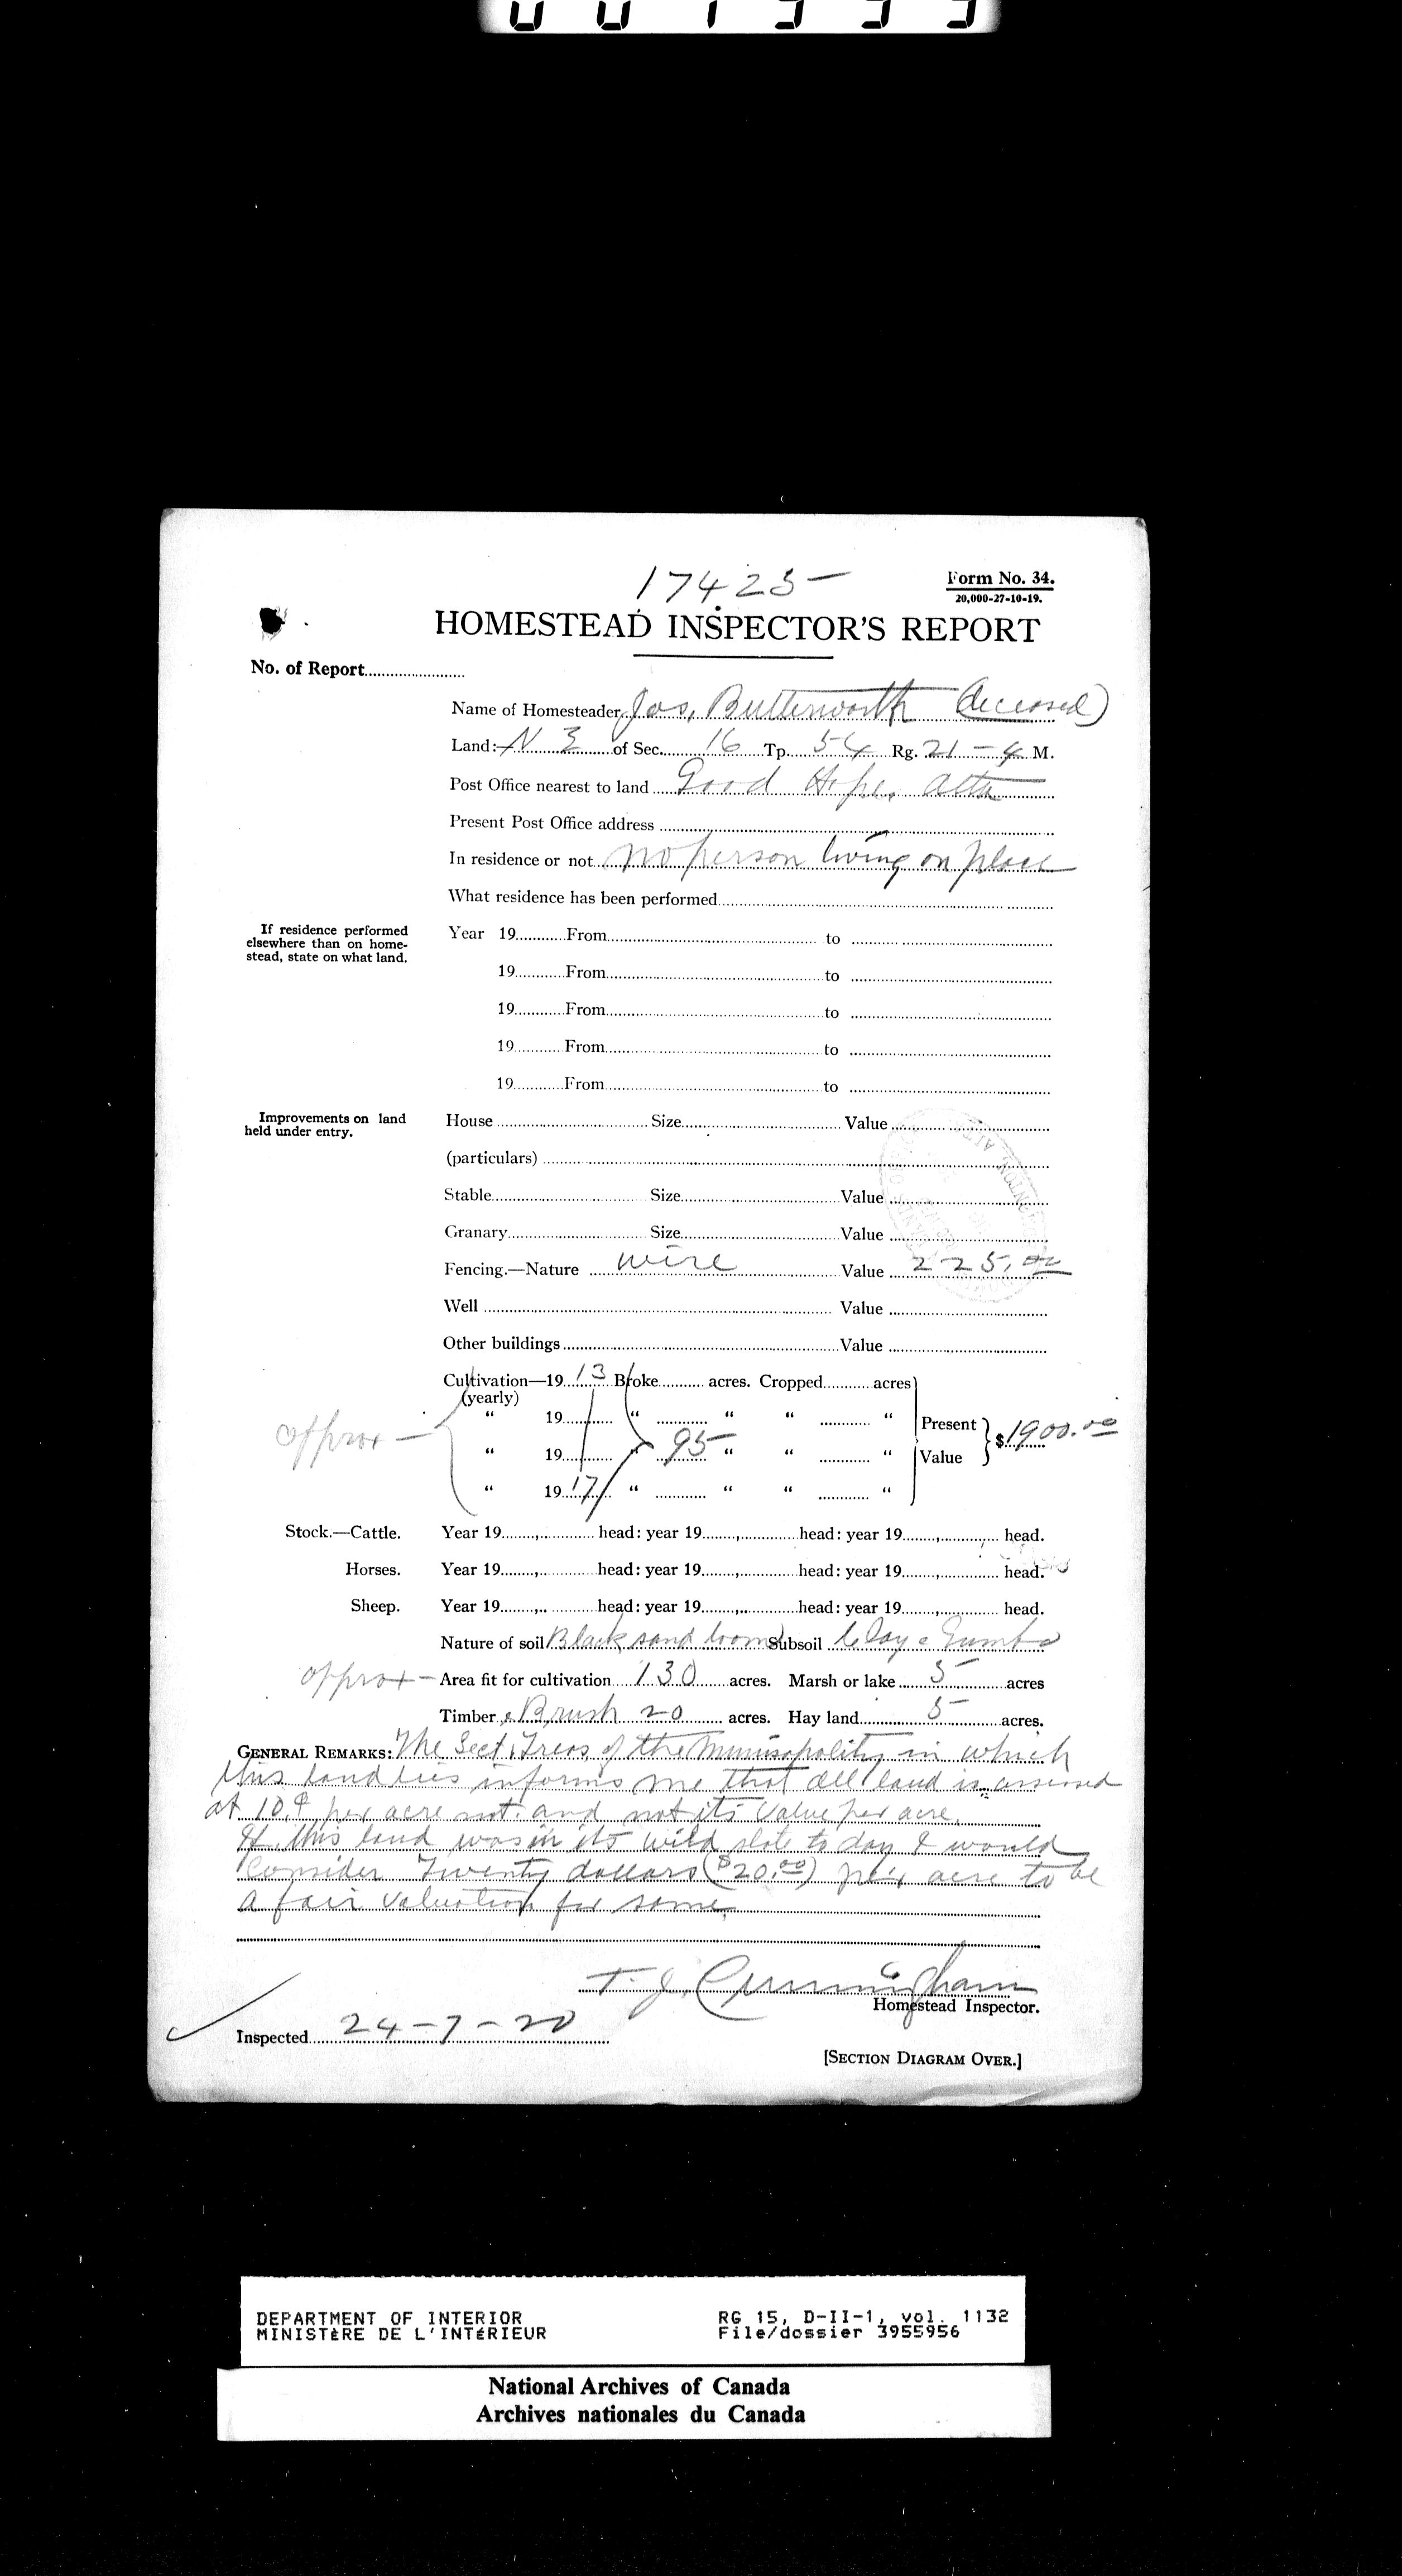 17425
Form No. 34.
20,000-27-10-19.
HOMESTEAD INSPECTOR'S REPORT
No. of Report
Name of Homesteader Jas. Butterworth (deceased)
Land:- N E of Sec. 16 Tp. 54 Rg. 21 - 4 M.
Post Office nearest to land Good Hope, Alta
Present Post Office address
In residence or not no person living on place
What residence has been performed
If residence performed elsewhere than on homestead, state on what land.
Year 19 From to
19 From to
19 From to
19 From to
19 From to
Improvements on land held under entry.
House Size Value
(particulars)
Stable Size Value
Granary Size Value
Fencing.—Nature wire Value 225.00
Well Value
Other buildings Value
Cultivation—19 13 Broke acres. Cropped acres
(yearly)
" 19 " " " " Present
approx — " 19 " 95 " " " Value $1900.00
" 19 17 " " " "
Stock.—Cattle. Year 19 , head: year 19 , head: year 19 , head.
Horses. Year 19 , head: year 19 , head: year 19 , head.
Sheep. Year 19 , head: year 19 , head: year 19 , head.
Nature of soil Black sand loom Subsoil Clay & Gumbo
approx — Area fit for cultivation 130 acres. Marsh or lake 5 acres
Timber & Brush 20 acres. Hay land 5 acres.
GENERAL REMARKS: The Sect. Treas of the Munisopolity in which
this land lies informs me that all land is assessed
at 10 per acre and not its value per acre.
If this land was in its wild state to day I would
Consider Twenty dollars ($20.00) per acre to be
a fair valuation for same.
T. J. Cunningham
Homestead Inspector.
Inspected 24-7-20
[SECTION DIAGRAM OVER.]
DEPARTMENT OF INTERIOR RG 15, D-II-1, vol. 1132
MINISTÈRE DE L'INTÉRIEUR File/dossier 3955956
National Archives of Canada
Archives nationales du Canada